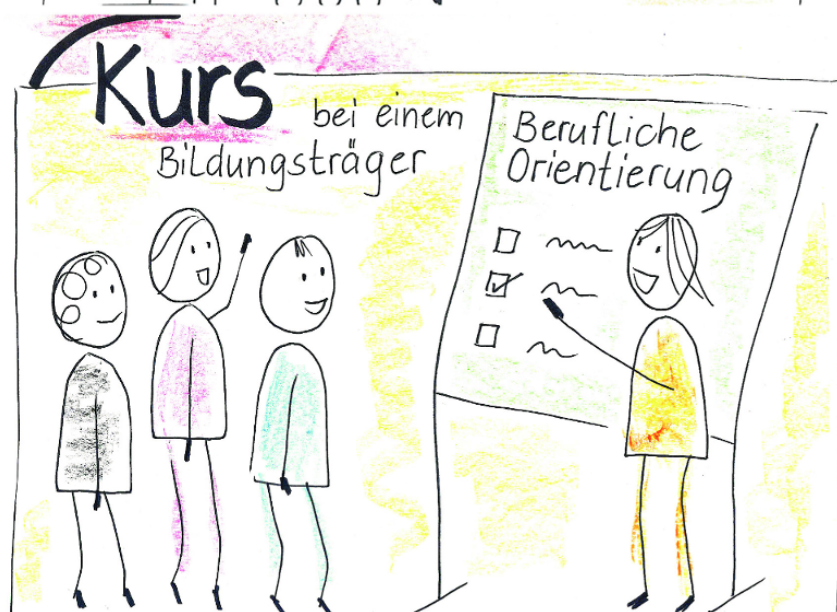 Kurs bei einem
Bildungsträger
Berufliche
Orientierung